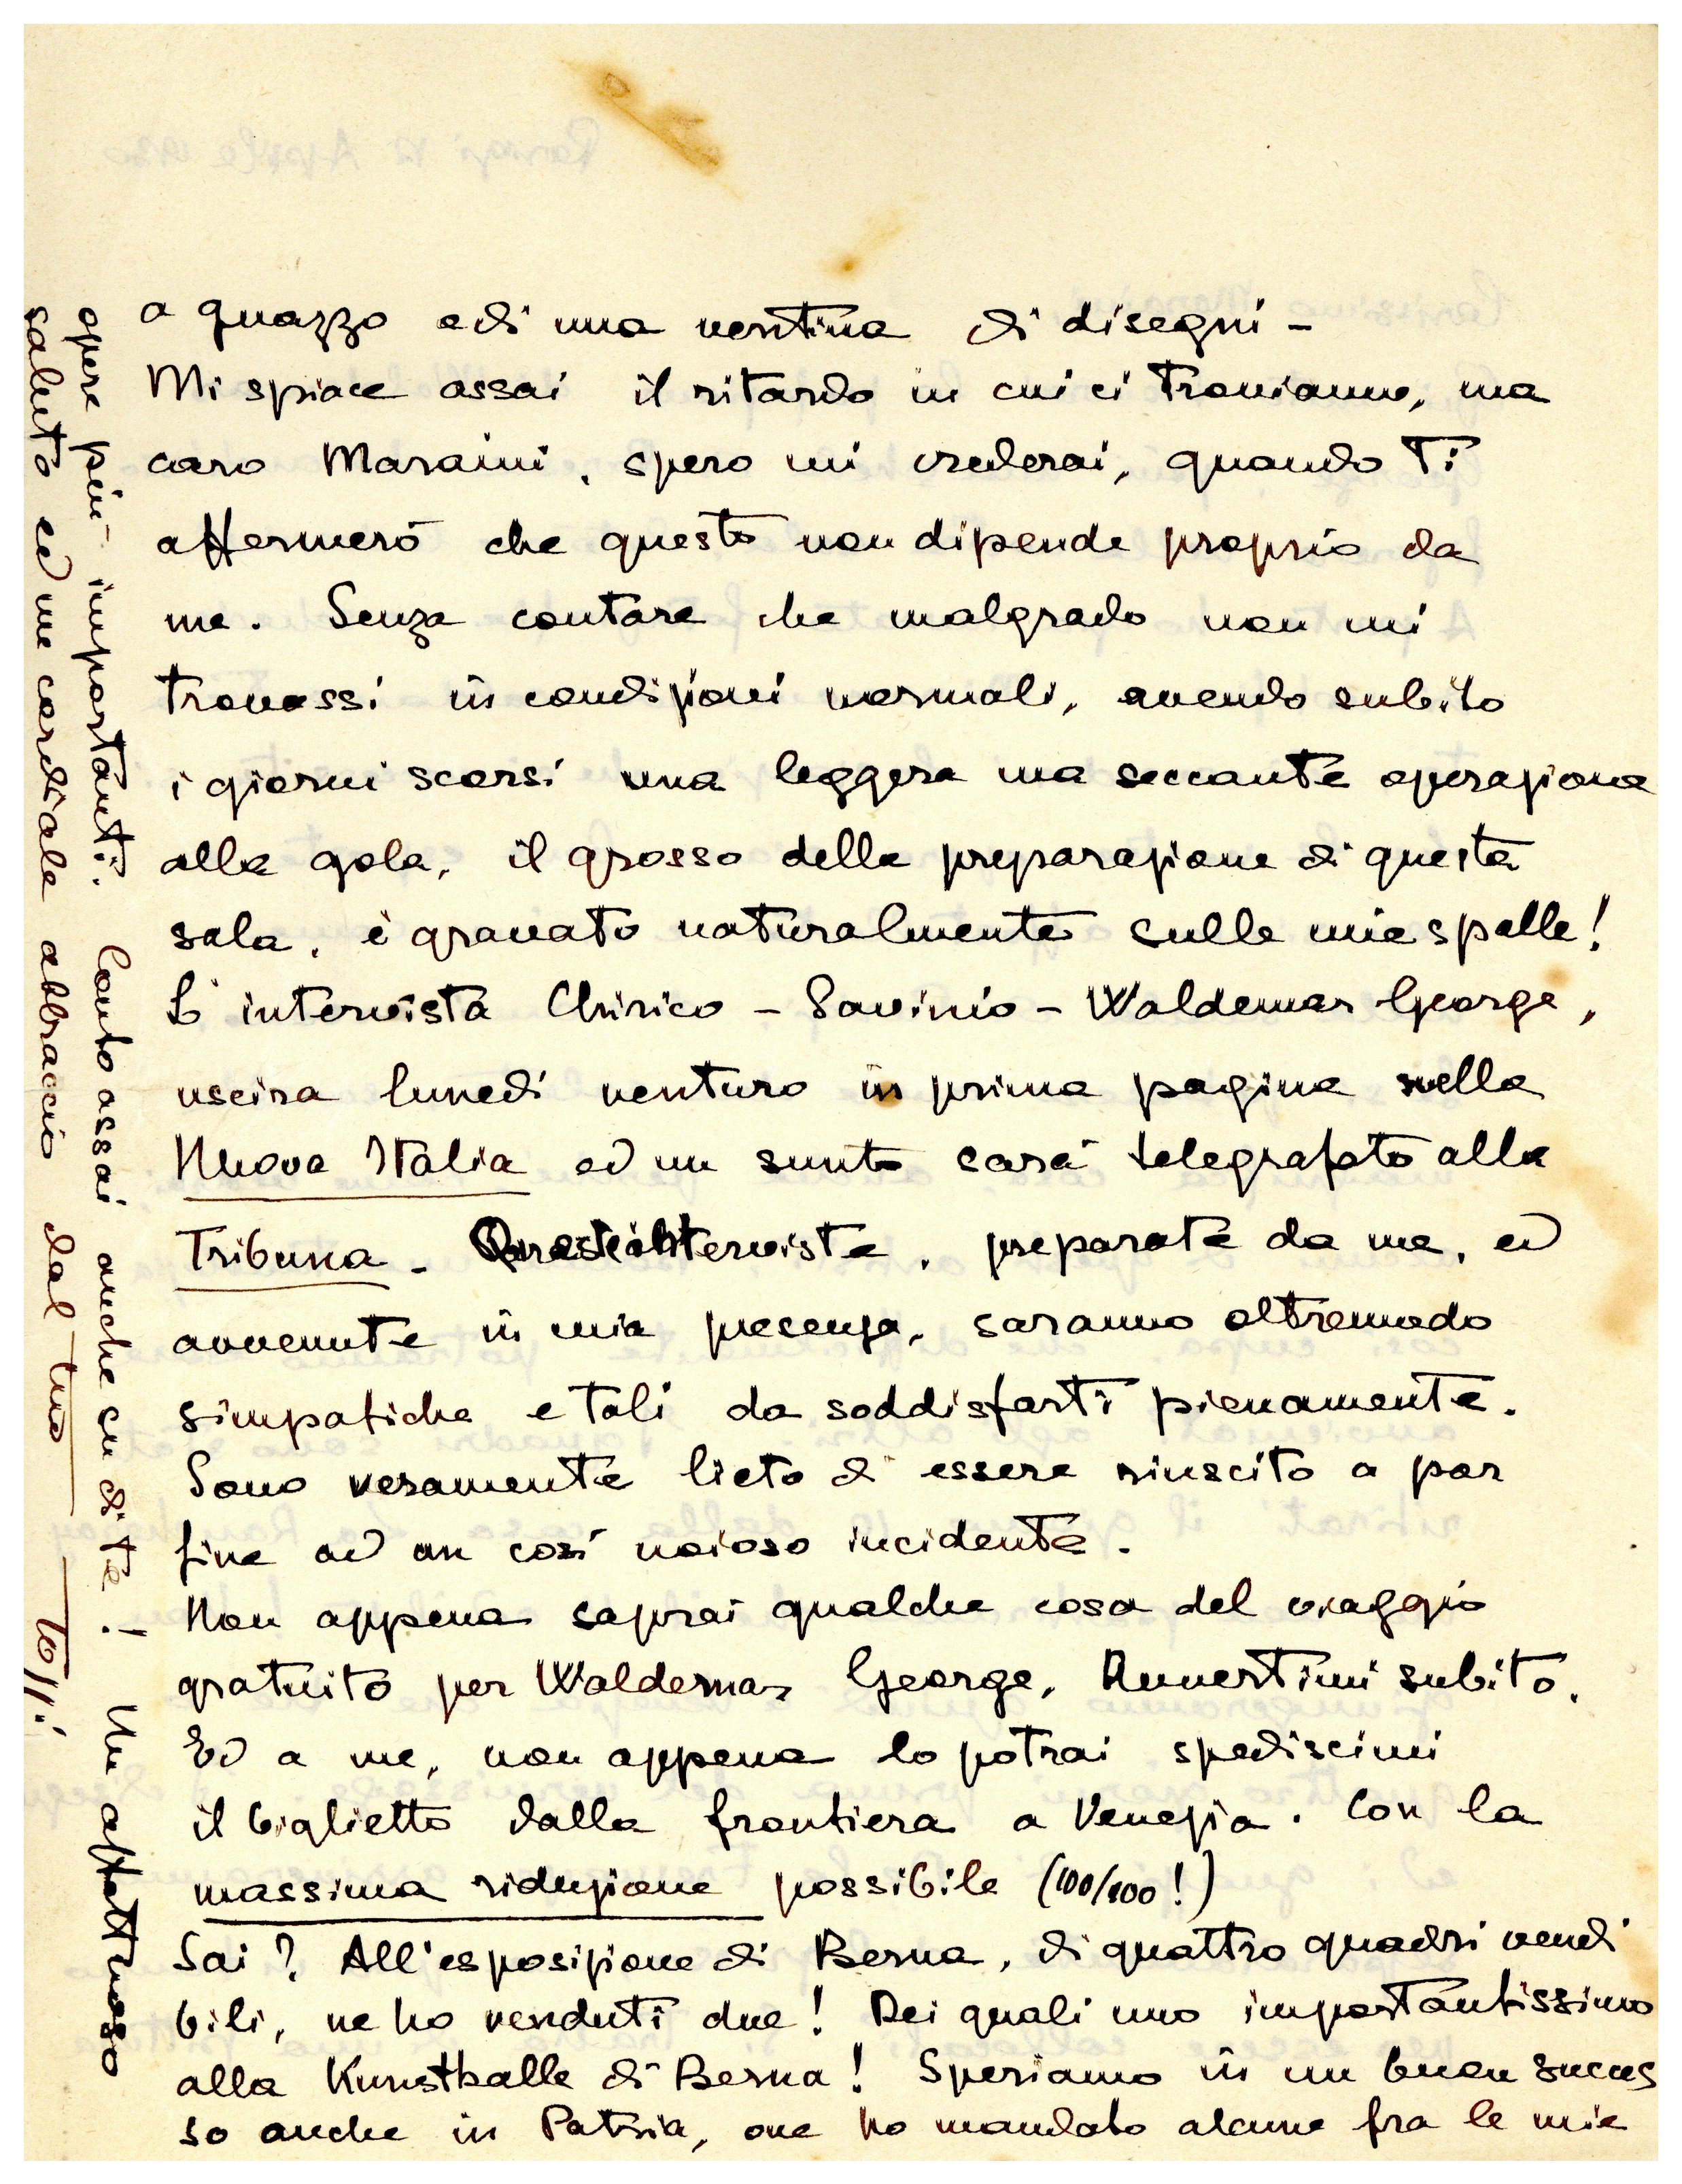 a guazzo e di una ventina di disegni -
Mi spiace assai il ritardo in cui ci troviamo, ma
caro Maraini, spero mi crederai, quando Ti
affermerò che questo non dipende proprio da
me. Senza contare che malgrado non mi
trovassi in condizioni normali, avendo subito
i giorni scorsi una leggera ma seccante operazione
alla gola, il grosso della preparazione di questa
sala, è gravato naturalmente sulle mie spalle!
L'intervista Chirico - Savinio - Waldemar George,
uscira lunedì venturo in prima pagina nella
Nuova Italia ed un sunto sarà telegrafato alla
Tribuna - Queste interviste, preparate da me, ed
avvenute in mia presenza, saranno oltremodo
simpatiche e tali da soddisfarti pienamente.
Sono veramente lieto di essere riuscito a por
fine ad un così noioso incidente.
Non appena saprai qualche cosa del viaggio
gratuito per Waldemar George, Avvertimi subito.
Ed a me, non appena lo potrai spediscimi
il biglietto dalla frontiera a Venezia. Con la
massima riduzione possibile (100/100!)
Sai? All'esposizione di Berna, di quattro quadri vendi
bili, ne ho venduti due! Dei quali uno importantissimo
alla Kunsthalle di Berna! Speriamo in un buon succes
so anche in Patria, ove ho mandato alcune fra le mie
opere più importanti. Conto assai anche su di te! Un affettuoso
saluto ed un cordiale abbraccio dal tuo Tozzi